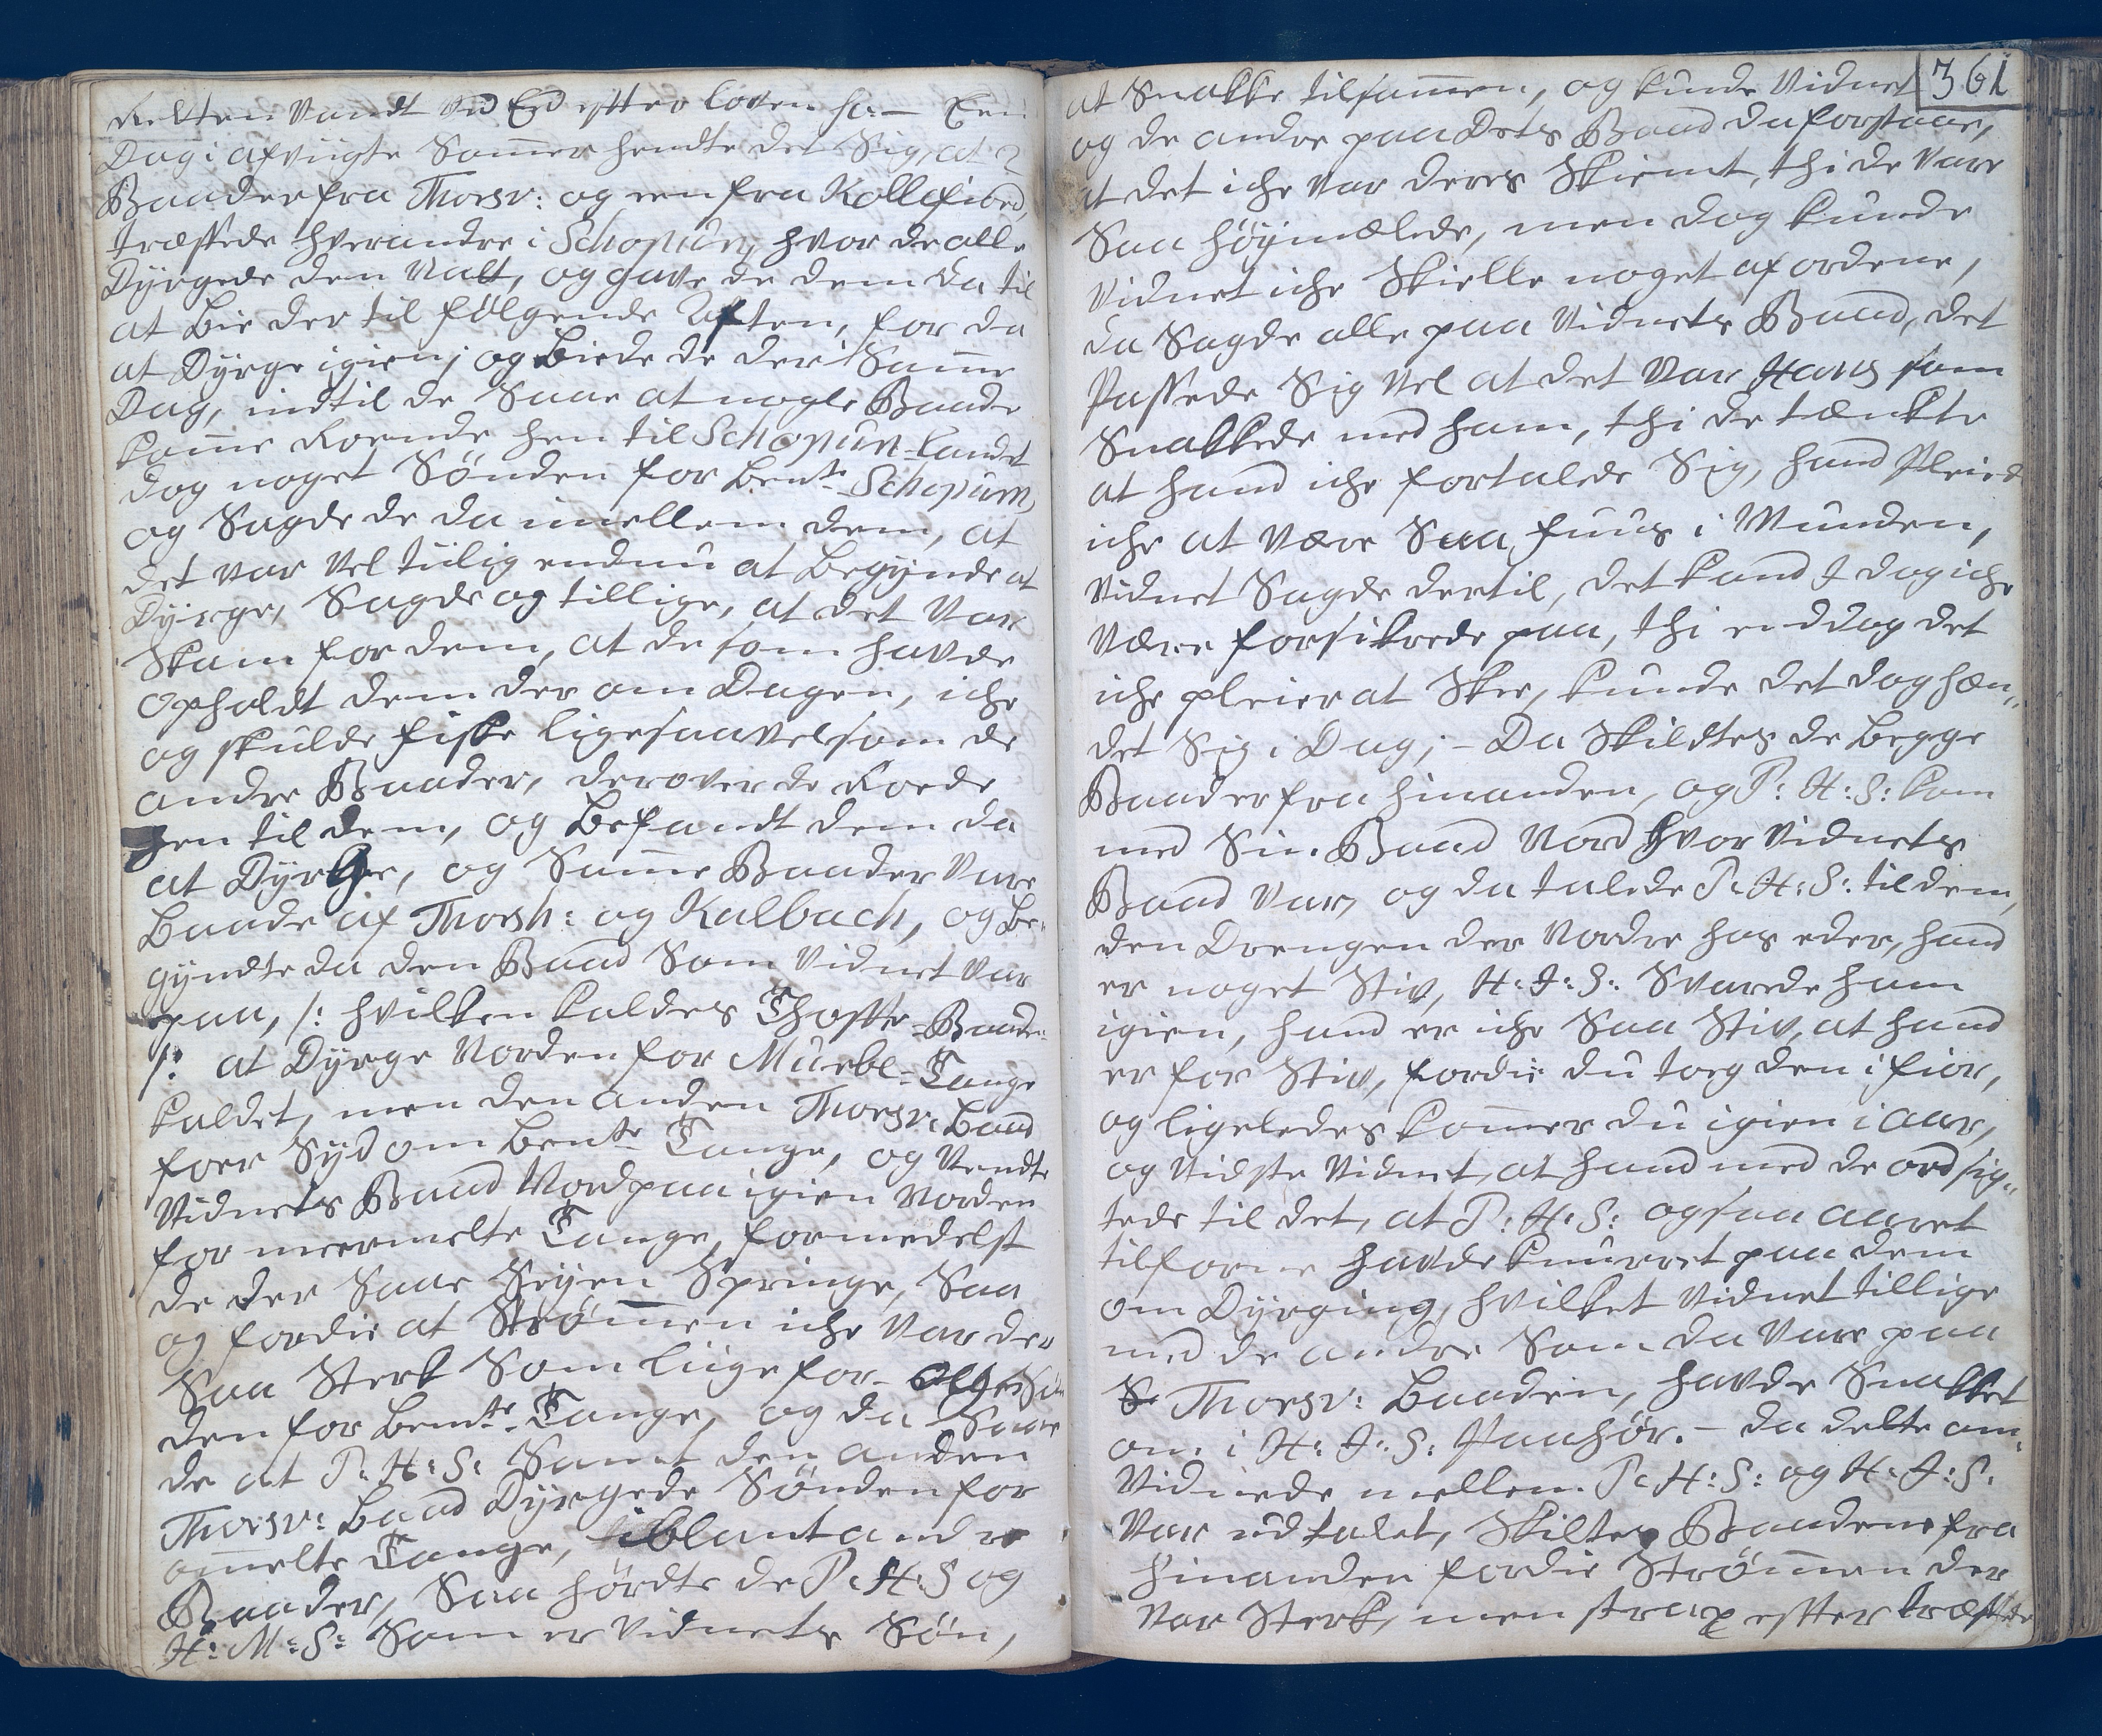 Retten Vandt Ved Eed effter loven sc:— Een
Dag i afvigte Sommer hendte det Sig, at 2
Baader fra Thorsv: og een fra Kollefiord,
træffede hverandre i Schopun, hvor de alle
Dyrgede den Natt, og gave de dem da til
at bie der til følgende Afften, for da
at Dyrge igien; og biede de der Samme
Dag, indtil de Saae at nogle Baade
komme Roende hen til Schopun-landet
dog noget Sønden for bemte Schopun,
og Sagde de da imellem dem, at
det var vel tiilig endnu at begynde at
Dyrge, Sagde og tillige, at det Var
Skam for dem, at de som havde
opholdt dem der om Dagen, iche
og skulde fiske ligesaavelsom de
andre Baader, derover de Roede
hen til dem, og befandt dem da
at Dyrge, og Samme Baader Vare
baade af Thorsh: og Kalbach, og be-
gyndte da den Baad Som Vidnet Var
paa, /: hvilken kaldes Thoffte-Baade
:/ at Dyrge Norden for Muebl-Tange
kaldet, men den anden Thorsv: baad
foer Syd om bemte Tange, og Vendte
Vidnets Baad Nordpaa igien Norden
for meermelte Tange, formedelst
de der Saae Seyen Springe, Saa
og fordie at Strømmen iche Var der
Saa Sterk Som liige for Søn
den for bemte Tange, og da Saae
de at P: H: S: Samt den anden
Thorsv: baad Dyrgede Sønden for
ommelte Tange, iblant andre
Baader, Saa hørdte de P: H: S og
H: M: S: Som er Vidnets Søn,
361
at Snakke tilsammen, og kunde Vidnet
og de andre paa Dets Baad da forstaae,
at det iche var deres Skiemt, thi de Vare
Saa høymælede, men dog kunde
Vidnet iche Skielle noget af ordene,
da Sagde alle paa Vidnets Baad, det
Passede Sig vel at det Var Hans som
Snakkede med ham, thi de tænkte
at hand iche fortalede Sig, hand Pleied
iche at Være Saa fuus i Munden,
Vidnet Sagde dertil, det kand I dog iche
Være forsikrede paa, thi enddog det
iche pleier at Skee, kunde det dog hæn-
det Sig i Dag; – Da Skildtes de begge
Baader fra hinanden, og P: H: S: kom
med Sin Baad Nord hvor Vidnets
Baad Var, og da talede P: H: S: til dem,
den Drengen der Nordre hos eder, hand
er noget Stiv, H: I: S: Svarede ham
igien, hand er iche Saa Stiv, at hand
er for Stiv, fordie du toeg den i fior,
og ligeledes kommer du igien i aar,
og Vidste Vidnet, at hand med de ord sig-
tede til det, at P: H: S: ogsaa aaret
tilforne havde knurret paa dem
om Dyrging, hvilket Vidnet tillige
med de andre Som da Vare paa
Thorsv: baaden, havde Snakket
om i H: I: S: Paahør. – da dette om-
Vidnede mellem P: H: S: og H: I: S:
Var udtalet, Skiltes Baadene fra
hinanden fordie Strømmen der
Var Sterk, men strax effter træffede